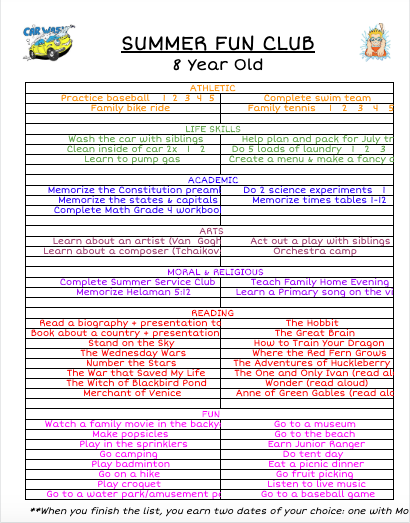 CAR WASH
SUMMER FUN CLUB
8 Year Old
ATHLETIC
Practice baseball 1 2 3 4 5 Complete swim team
Family bike ride Family tennis 1 2 3 4 5
LIFE SKILLS
Wash the car with siblings Help plan and pack for July tr
Clean inside of car 2x 1 2 Do 5 loads of laundry 1 2 3
Learn to pump gas Create a menu & make a fancy
ACADEMIC
Memorize the Constitution pream Do 2 science experiments 1
Memorize the states & capitals Memorize times tables 1-12
Complete Math Grade 4 workboo
ARTS
Learn about an artist (Van Gogh Act out a play with siblings
Learn about a composer (Tchaikov Orchestra camp
MORAL & RELIGIOUS
Complete Summer Service Club Teach Family Home Evening
Memorize Helaman 5:12 Learn a Primary song on the vi
READING
Read a biography + presentation to The Hobbit
Book about a country + presentation The Great Brain
Stand on the Sky How to Train Your Dragon
The Wednesday Wars Where the Red Fern Grows
Number the Stars The Adventures of Huckleberry
The War that Saved My Life The One and Only Ivan (read al
The Witch of Blackbird Pond Wonder (read aloud)
Merchant of Venice Anne of Green Gables (read alo
FUN
Watch a family movie in the backy Go to a museum
Make popsicles Go to the beach
Play in the sprinklers Earn Junior Ranger
Go camping Do tent day
Play badminton Eat a picnic dinner
Go on a hike Go fruit picking
Play croquet Listen to live music
Go to a water park/amusement p Go to a baseball game
**When you finish the list, you earn two dates of your choice: one with Mo